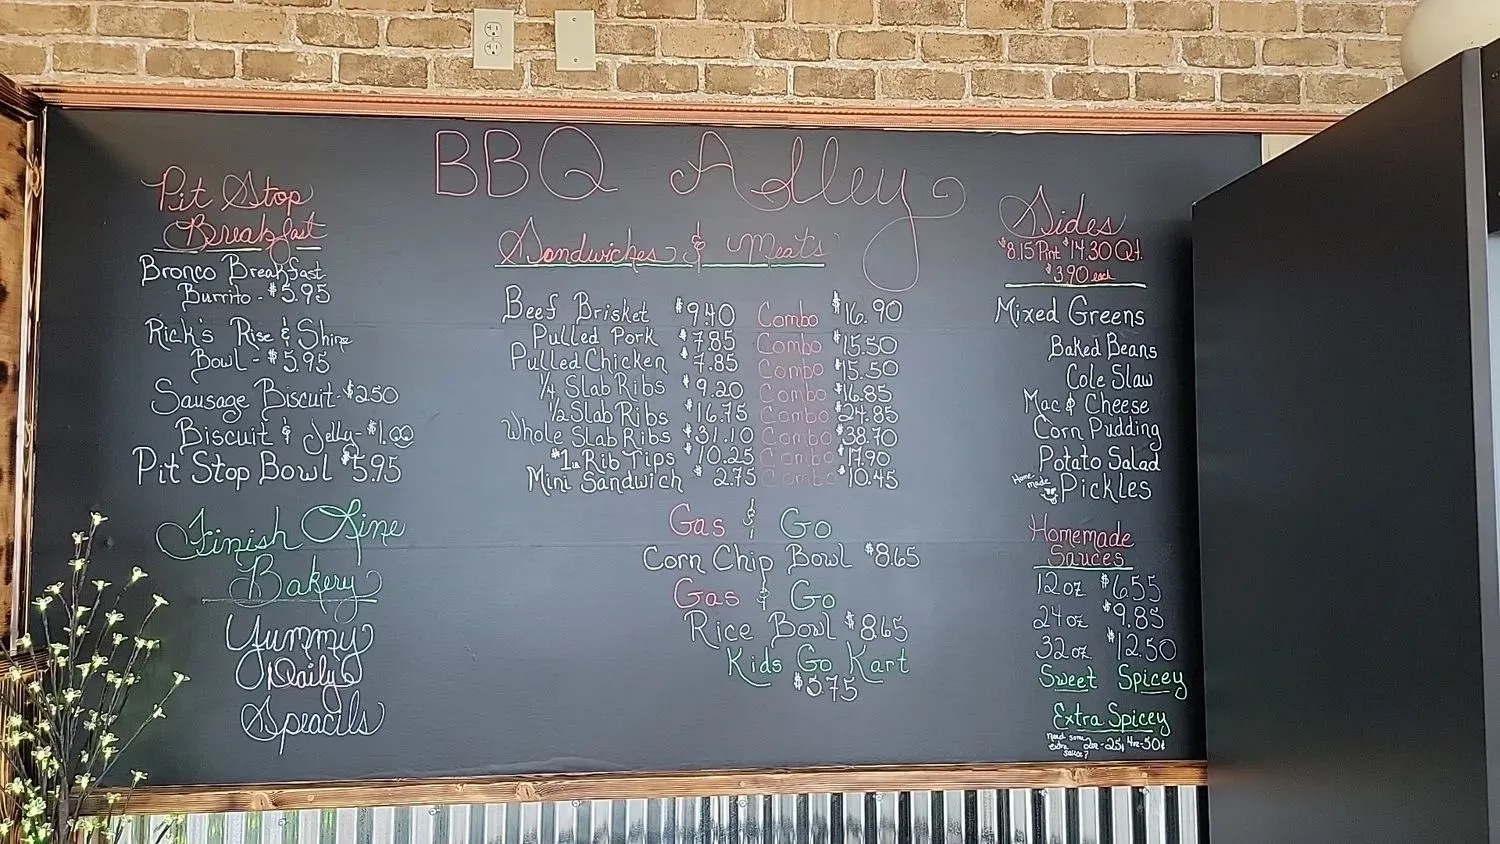 BBQ Alley
Pit Stop
Breakfast
Bronco Breakfast
Burrito - $5.95
Rick's Rise & Shine
Bowl - $5.95
Sausage Biscuit - $2.50
Biscuit & Jelly - $1.00
Pit Stop Bowl $5.95
Finish Line
Bakery
Yummy
Daily
Speacils
Sandwiches & Meats
Beef Brisket $9.40 Combo $16.90
Pulled Pork $7.85 Combo $15.50
Pulled Chicken $7.85 Combo $15.50
1/4 Slab Ribs $9.20 Combo $16.85
1/2 Slab Ribs $16.75 Combo $24.85
Whole Slab Ribs $31.10 Combo $38.70
Rib Tips $10.25 Combo $17.90
Mini Sandwich $2.75 Combo $10.45
Gas & Go
Corn Chip Bowl $8.65
Gas & Go
Rice Bowl $8.65
Kids Go Kart
$5.75
Sides
$8.15 Pint $14.30 Qt.
$3.90 each
Mixed Greens
Baked Beans
Cole Slaw
Mac & Cheese
Corn Pudding
Potato Salad
Home
made
Pickles
Homemade
Sauces
12oz $6.55
24oz $9.85
32oz $12.50
Sweet Spicey
Extra Spicey
Need some
extra 2oz-25¢ 4oz-50¢
sauce?